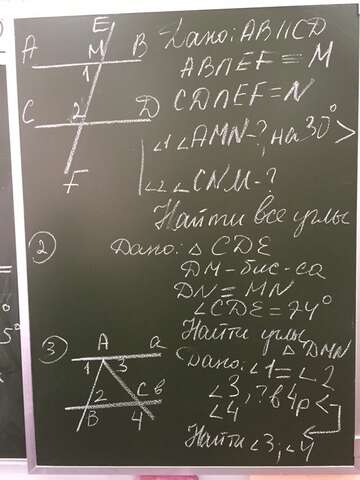 E
A M B
1
C 2 D
F
Дано: AB||CD
AB∩EF = M
CD∩EF = N
∠1 ∠AMN-?, на 30° >
∠2 ∠CNM-?
Найти все углы
2 Дано: △ CDE
DM - бис-са
DN = MN
∠CDE = 74°
Найти углы
△ DMN
3
A a
1 3
2 C в
B 4
Дано: ∠1 = ∠2
∠3, ? в 4р <
∠4
Найти ∠3, ∠4
5°